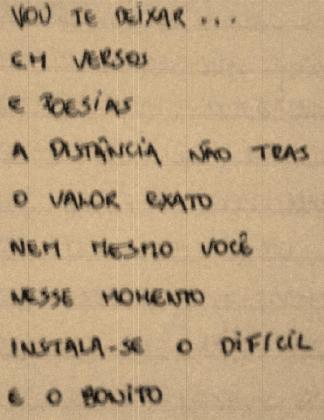 VOU TE DEIXAR...
EM VERSOS
E POESÍAS
A DISTÂNCIA NÃO TRAS
O VALOR EXATO
NEM MESMO VOCÊ
NESSE MOMENTO
INSTALA-SE O DIFÍCIL
E O BONITO